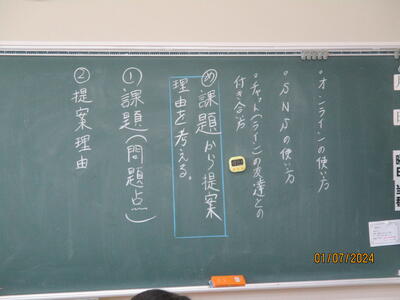 ・オンラインの使い方
・SNSの使い方
・チャット(ライン)の友達との
付き合い方
め 課題から提案
理由を考える。
① 課題(問題点)
② 提案理由
01/07/2024